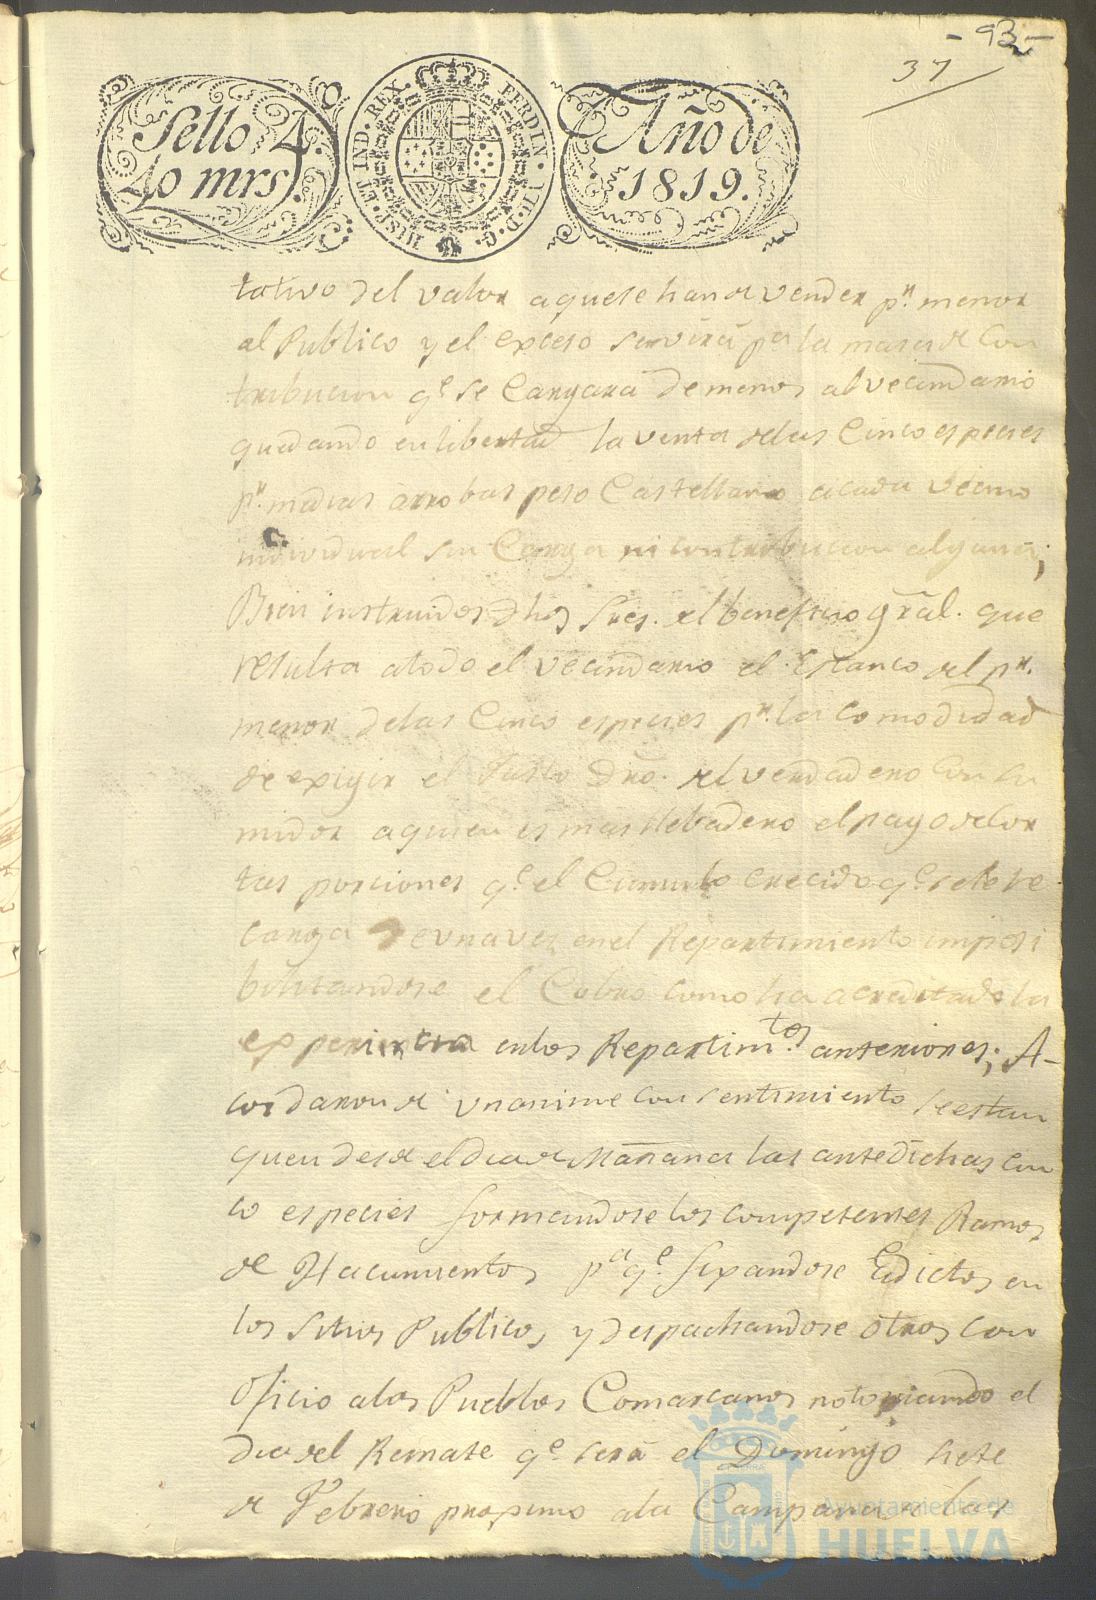 - 93 -
37
Sello 4.
40 mrs.
HISP. ET IND. REX. FERDIN. VII. D. G.
Año de
1819.
tativo del valor aquese han de vender pr. menor
al Publico y el exceso servirá pa la masa de Con
tribucion qe. se Cargara de menos al vecindario
quedando en libertad la venta delas Cinco especies
pr. medias arrobas peso Castellano acada vecino
individual sin Carga ni contribucion alguna;
Bien instruidos dhos Sres. del beneficio gral. que
resulta atodo el vecindario el Estanco del pr.
menor delas Cinco especies pr. la comodidad
de exigir el Justo Dro. del verdadero Consu
midor aquien es mas llebadero el pago de cor
tas porciones qe. el Cumulo crecido qe. sele re
carga de una vez en el Repartimiento imposi
bilitandose el Cobro como ha acreditado la
experiencia en los Repartimtos. anteriores; A-
cordaron de unanime consentimiento se estan
quen desde el dia de Mañana las antedichas cin
co especies formandose los competentes Ramos
de Hacimientos pa qe. fixandose Edictos en
los sitios Publicos, y despachandose otros con
oficio alos Pueblos Comarcanos notoriando el
dia del Remate qe. será el Domingo siete
de Febrero proximo ala Campana delas
Ayuntamiento de
HUELVA